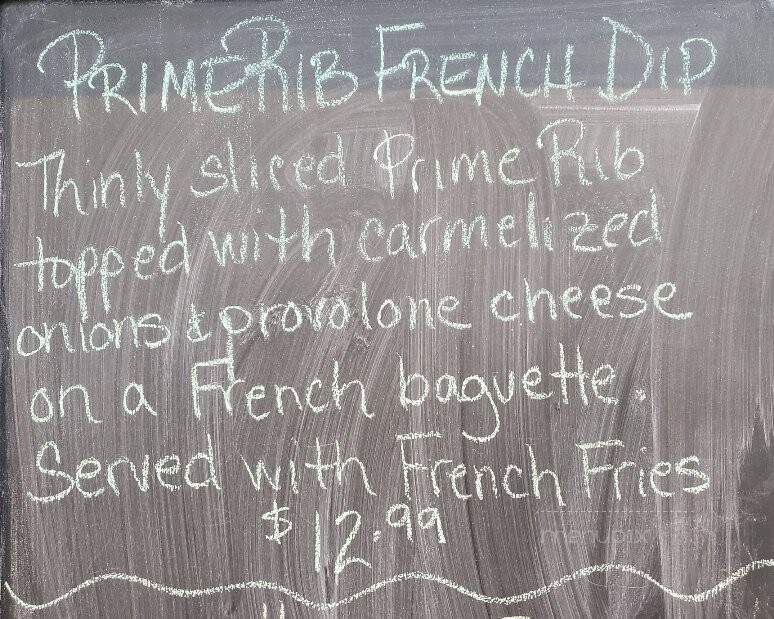 PRIME RIB FRENCH DIP
Thinly sliced Prime Rib
topped with carmelized
onions & provolone cheese
on a French baguette.
Served with French Fries
$12.99
menupix